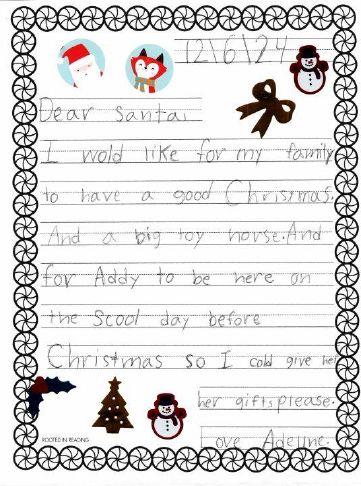 12\6\24
Dear Santa,
I wold like for my family
to have a good Christmas.
And a big toy horse. And
for Addy to be here on
the Scool day before
Christmas so I cold give her
her gifts please.
Love Adeline.
ROOTED IN READING